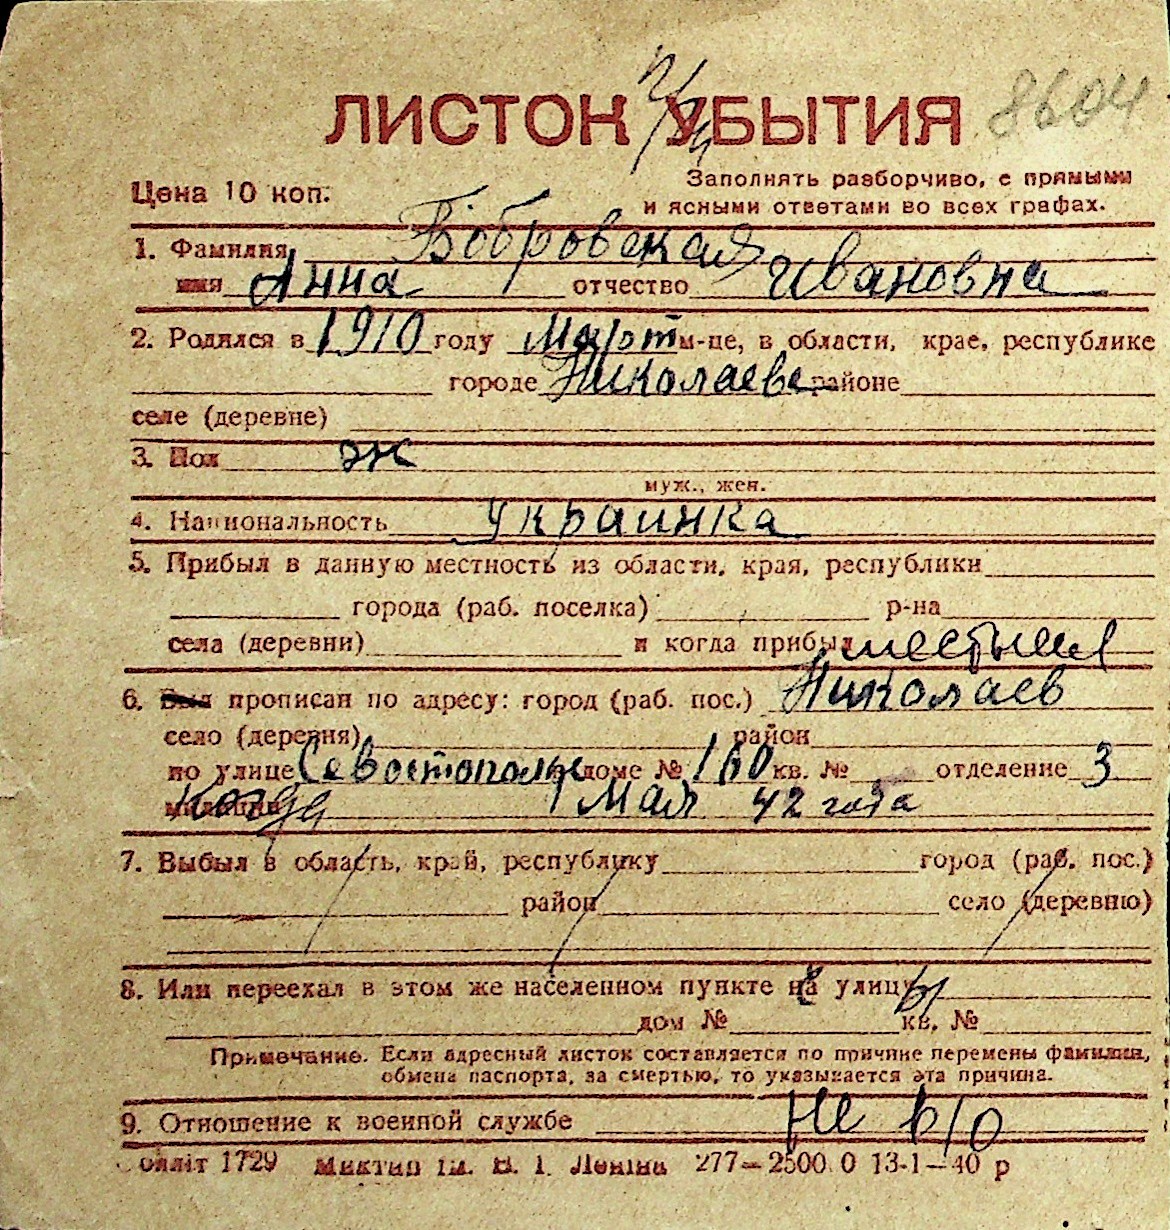 ЛИСТОК УБЫТИЯ 8604
Цена 10 коп.
Заполнять разборчиво, с прямыми
и ясными ответами во всех графах.
1. Фамилия Бобровская
имя Анна отчество Ивановна
2. Родился в 1910 году Март м-це, в области, крае, республике
городе Николаеве районе
селе (деревне)
3. Пол ж
муж., жен.
4. Национальность Украинка
5. Прибыл в данную местность из области, края, республики
города (раб. поселка) р-на
села (деревни) и когда прибыл
6. Был прописан по адресу: город (раб. пос.) Николаев
село (деревня) район
по улице Севостополь доме № 160 кв. № отделение 3
милиции когда 1 Мая 42 года
7. Выбыл в область, край, республику город (раб. пос.)
район село (деревню)
8. Или переехал в этом же населенном пункте на улицу
дом № кв. №
Примечание. Если адресный листок составляется по причине перемены фамилии,
обмена паспорта, за смертью, то указывается эта причина.
9. Отношение к военной службе не в/о
1729 Ленiна 277—2500.0 13-1—40 р